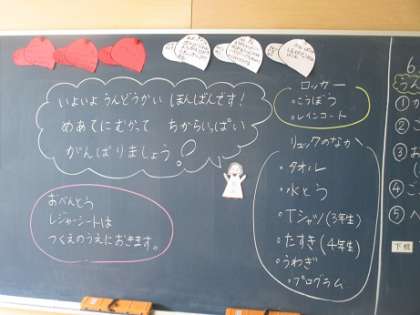 いよいよ うんどうかい ほんばんです!
めあてにむかって ちからいっぱい
がんばりましょう。
おべんとう
レジャーシートは
つくえのうえにおきます。
ロッカー
・こうぼう
・レインコート
リュックのなか
・タオル
・水とう
・Tシャツ(3年生)
・たすき(4年生)
・うわぎ
・プログラム
6
うん
①
②こ
③お
④こ
⑤ベ
下校